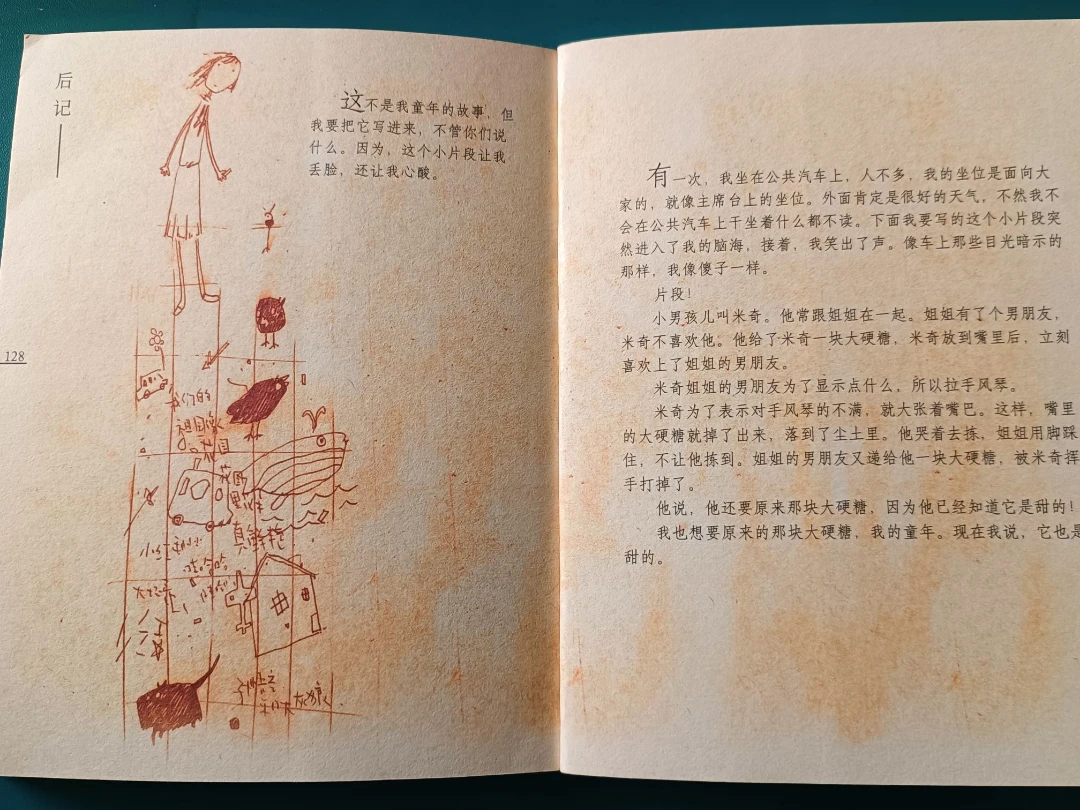 后记
这不是我童年的故事，但
我要把它写进来，不管你们说
什么。因为，这个小片段让我
丢脸，还让我心酸。
128
我们的
祖国像
花园
花园
里花
真鲜艳
大灰狼
有一次，我坐在公共汽车上，人不多，我的坐位是面向大
家的，就像主席台上的坐位。外面肯定是很好的天气，不然我不
会在公共汽车上干坐着什么都不读。下面我要写的这个小片段突
然进入了我的脑海，接着，我笑出了声。像车上那些目光暗示的
那样，我像傻子一样。
片段！
小男孩儿叫米奇。他常跟姐姐在一起。姐姐有了个男朋友，
米奇不喜欢他。他给了米奇一块大硬糖，米奇放到嘴里后，立刻
喜欢上了姐姐的男朋友。
米奇姐姐的男朋友为了显示点什么，所以拉手风琴。
米奇为了表示对手风琴的不满，就大张着嘴巴。这样，嘴里
的大硬糖就掉了出来，落到了尘土里。他哭着去拣，姐姐用脚踩
住，不让他拣到。姐姐的男朋友又递给他一块大硬糖，被米奇挥
手打掉了。
他说，他还要原来那块大硬糖，因为他已经知道它是甜的！
我也想要原来的那块大硬糖，我的童年。现在我说，它也是
甜的。